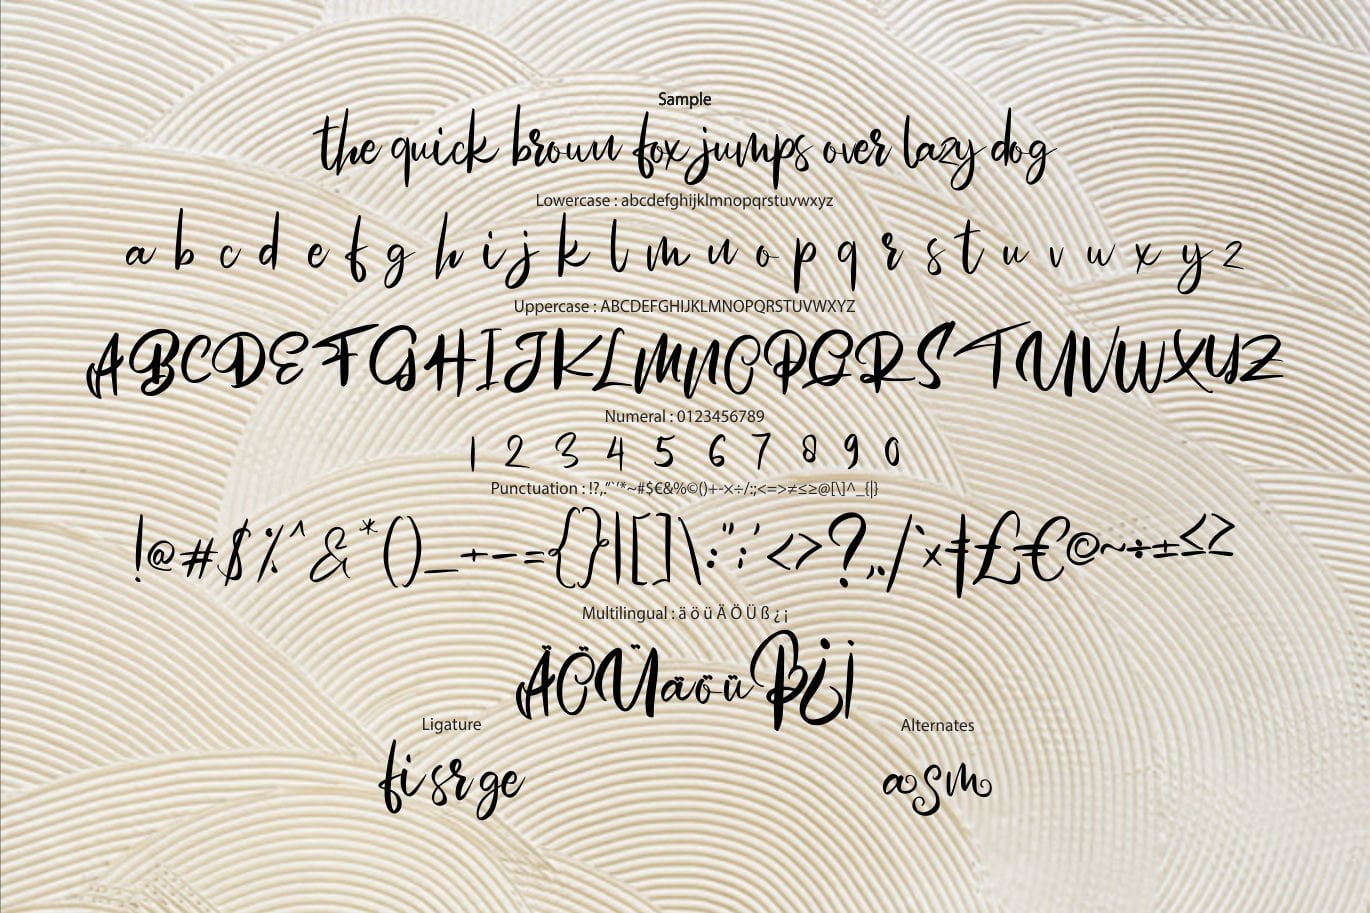 Sample
the quick brown fox jumps over lazy dog
Lowercase : abcdefghijklmnopqrstuvwxyz
a b c d e f g h i j k l m n o p q r s t u v w x y z
Uppercase : ABCDEFGHIJKLMNOPQRSTUVWXYZ
A B C D E F G H I J K L M N O P Q R S T U V W X Y Z
Numeral : 0123456789
1 2 3 4 5 6 7 8 9 0
Punctuation : !?,.”“’‘*~#$€&%©()+-×÷/:;<=>≠≤≥@[\]^_{|}
!@#$%^&*()_+−={}|[]\:";'<>?,./`×ǂ£€©~÷±≤≥
Multilingual : ä ö ü Ä Ö Ü ß ¿ ¡
ÄÖÜäöüß¿¡
Ligature
fi sr ge
Alternates
a s m